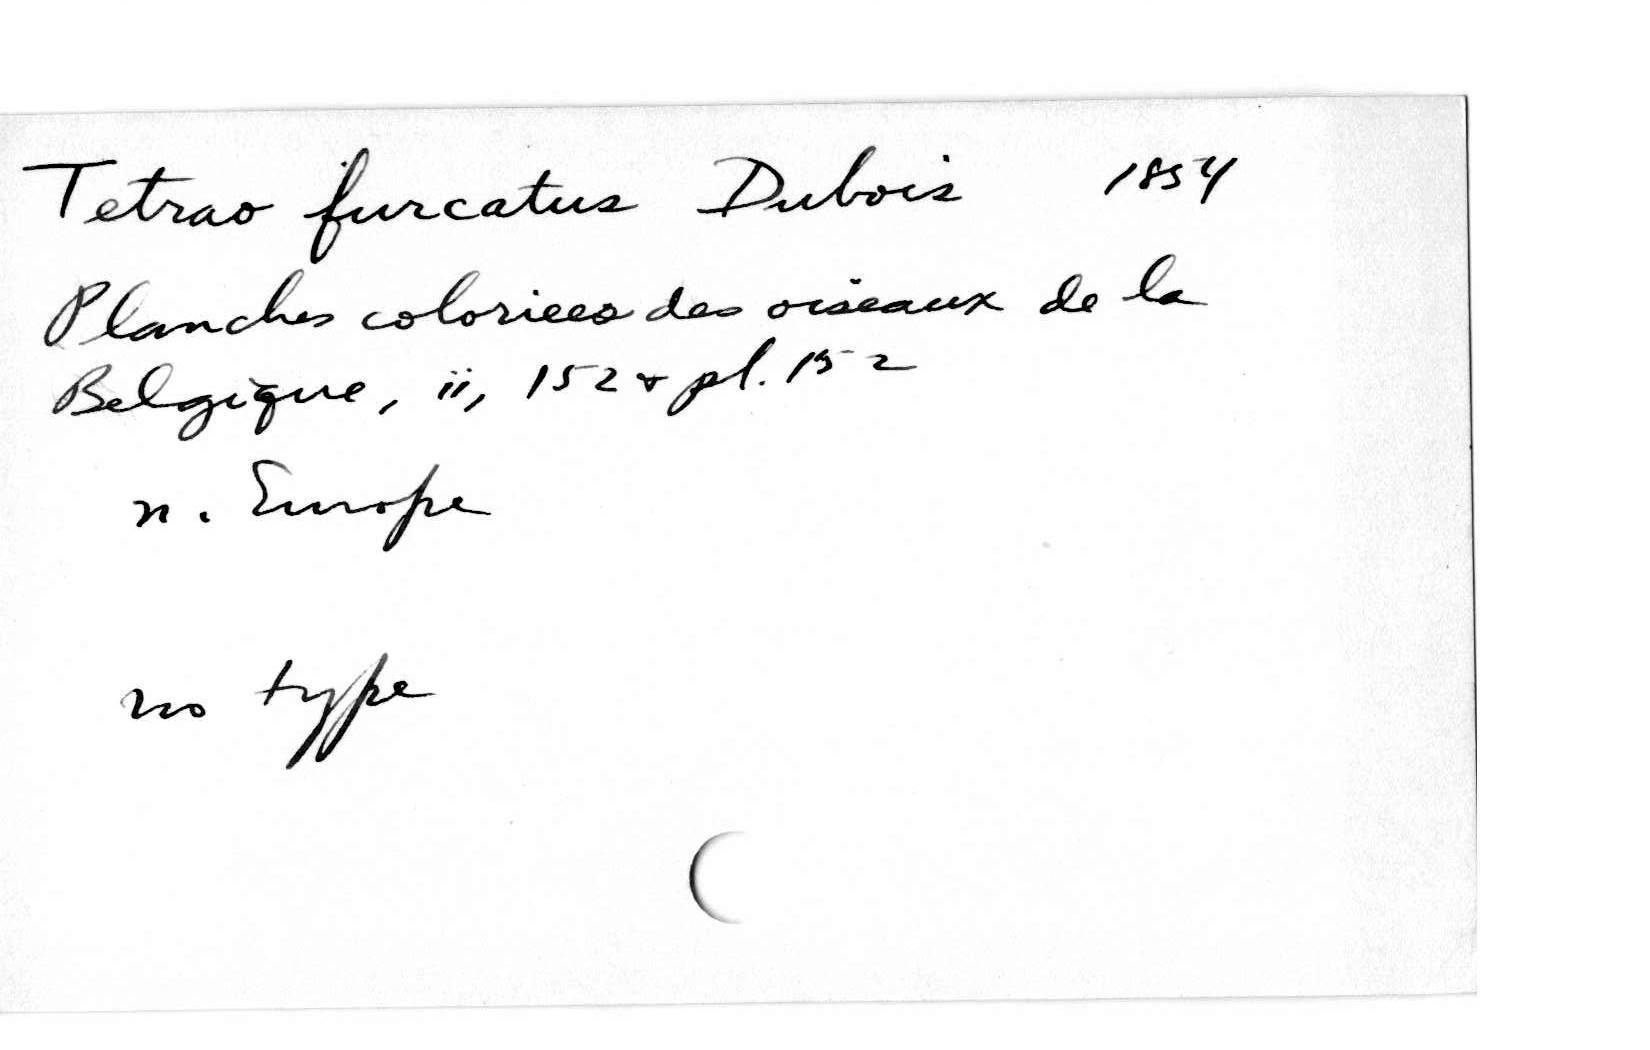 Tetrao furcatus Dubois 1854
Planches coloriees des oiseaux de la
Belgique, ii, 152 & pl. 152
n. Europe
no type